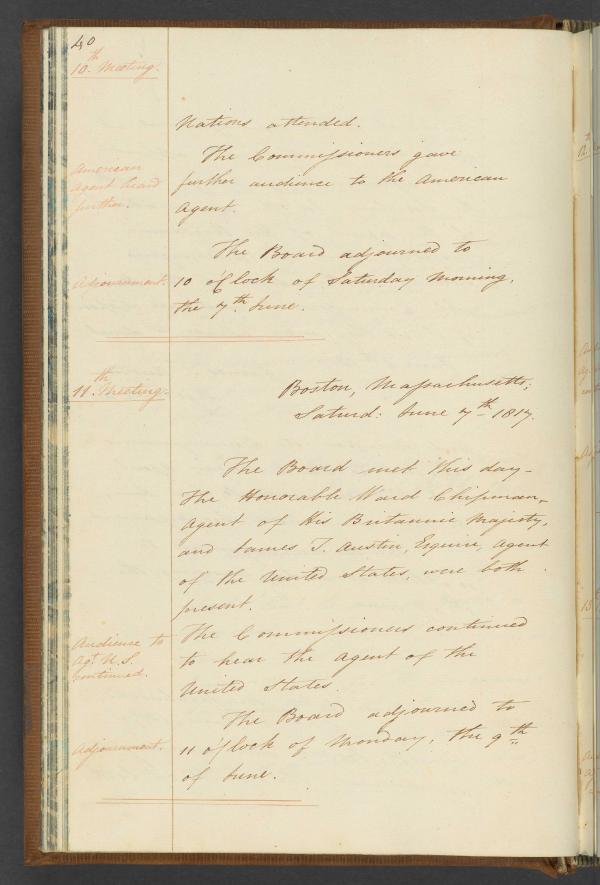 40
10.th Meeting.
Nations attended.
The Commissioners gave
American
Agent heard
further.
further audience to the American
Agent.
The Board adjourned to
Adjournment.
10 o'Clock of Saturday Morning,
the 7.th June.
11.th Meeting.
Boston, Massachusetts;
Saturd: June 7th 1817.
The Board met this day-
The Honorable Ward Chipman,
Agent of His Britannic Majesty,
and James T. Austin, Esquire, Agent
of the United States, were both
present.
Audience to
Agt. U.S.
continued.
The Commissioners continued
to hear the Agent of the
United States.
The Board adjourned to
Adjournment.
11 o'Clock of Monday, the 9th
of June.